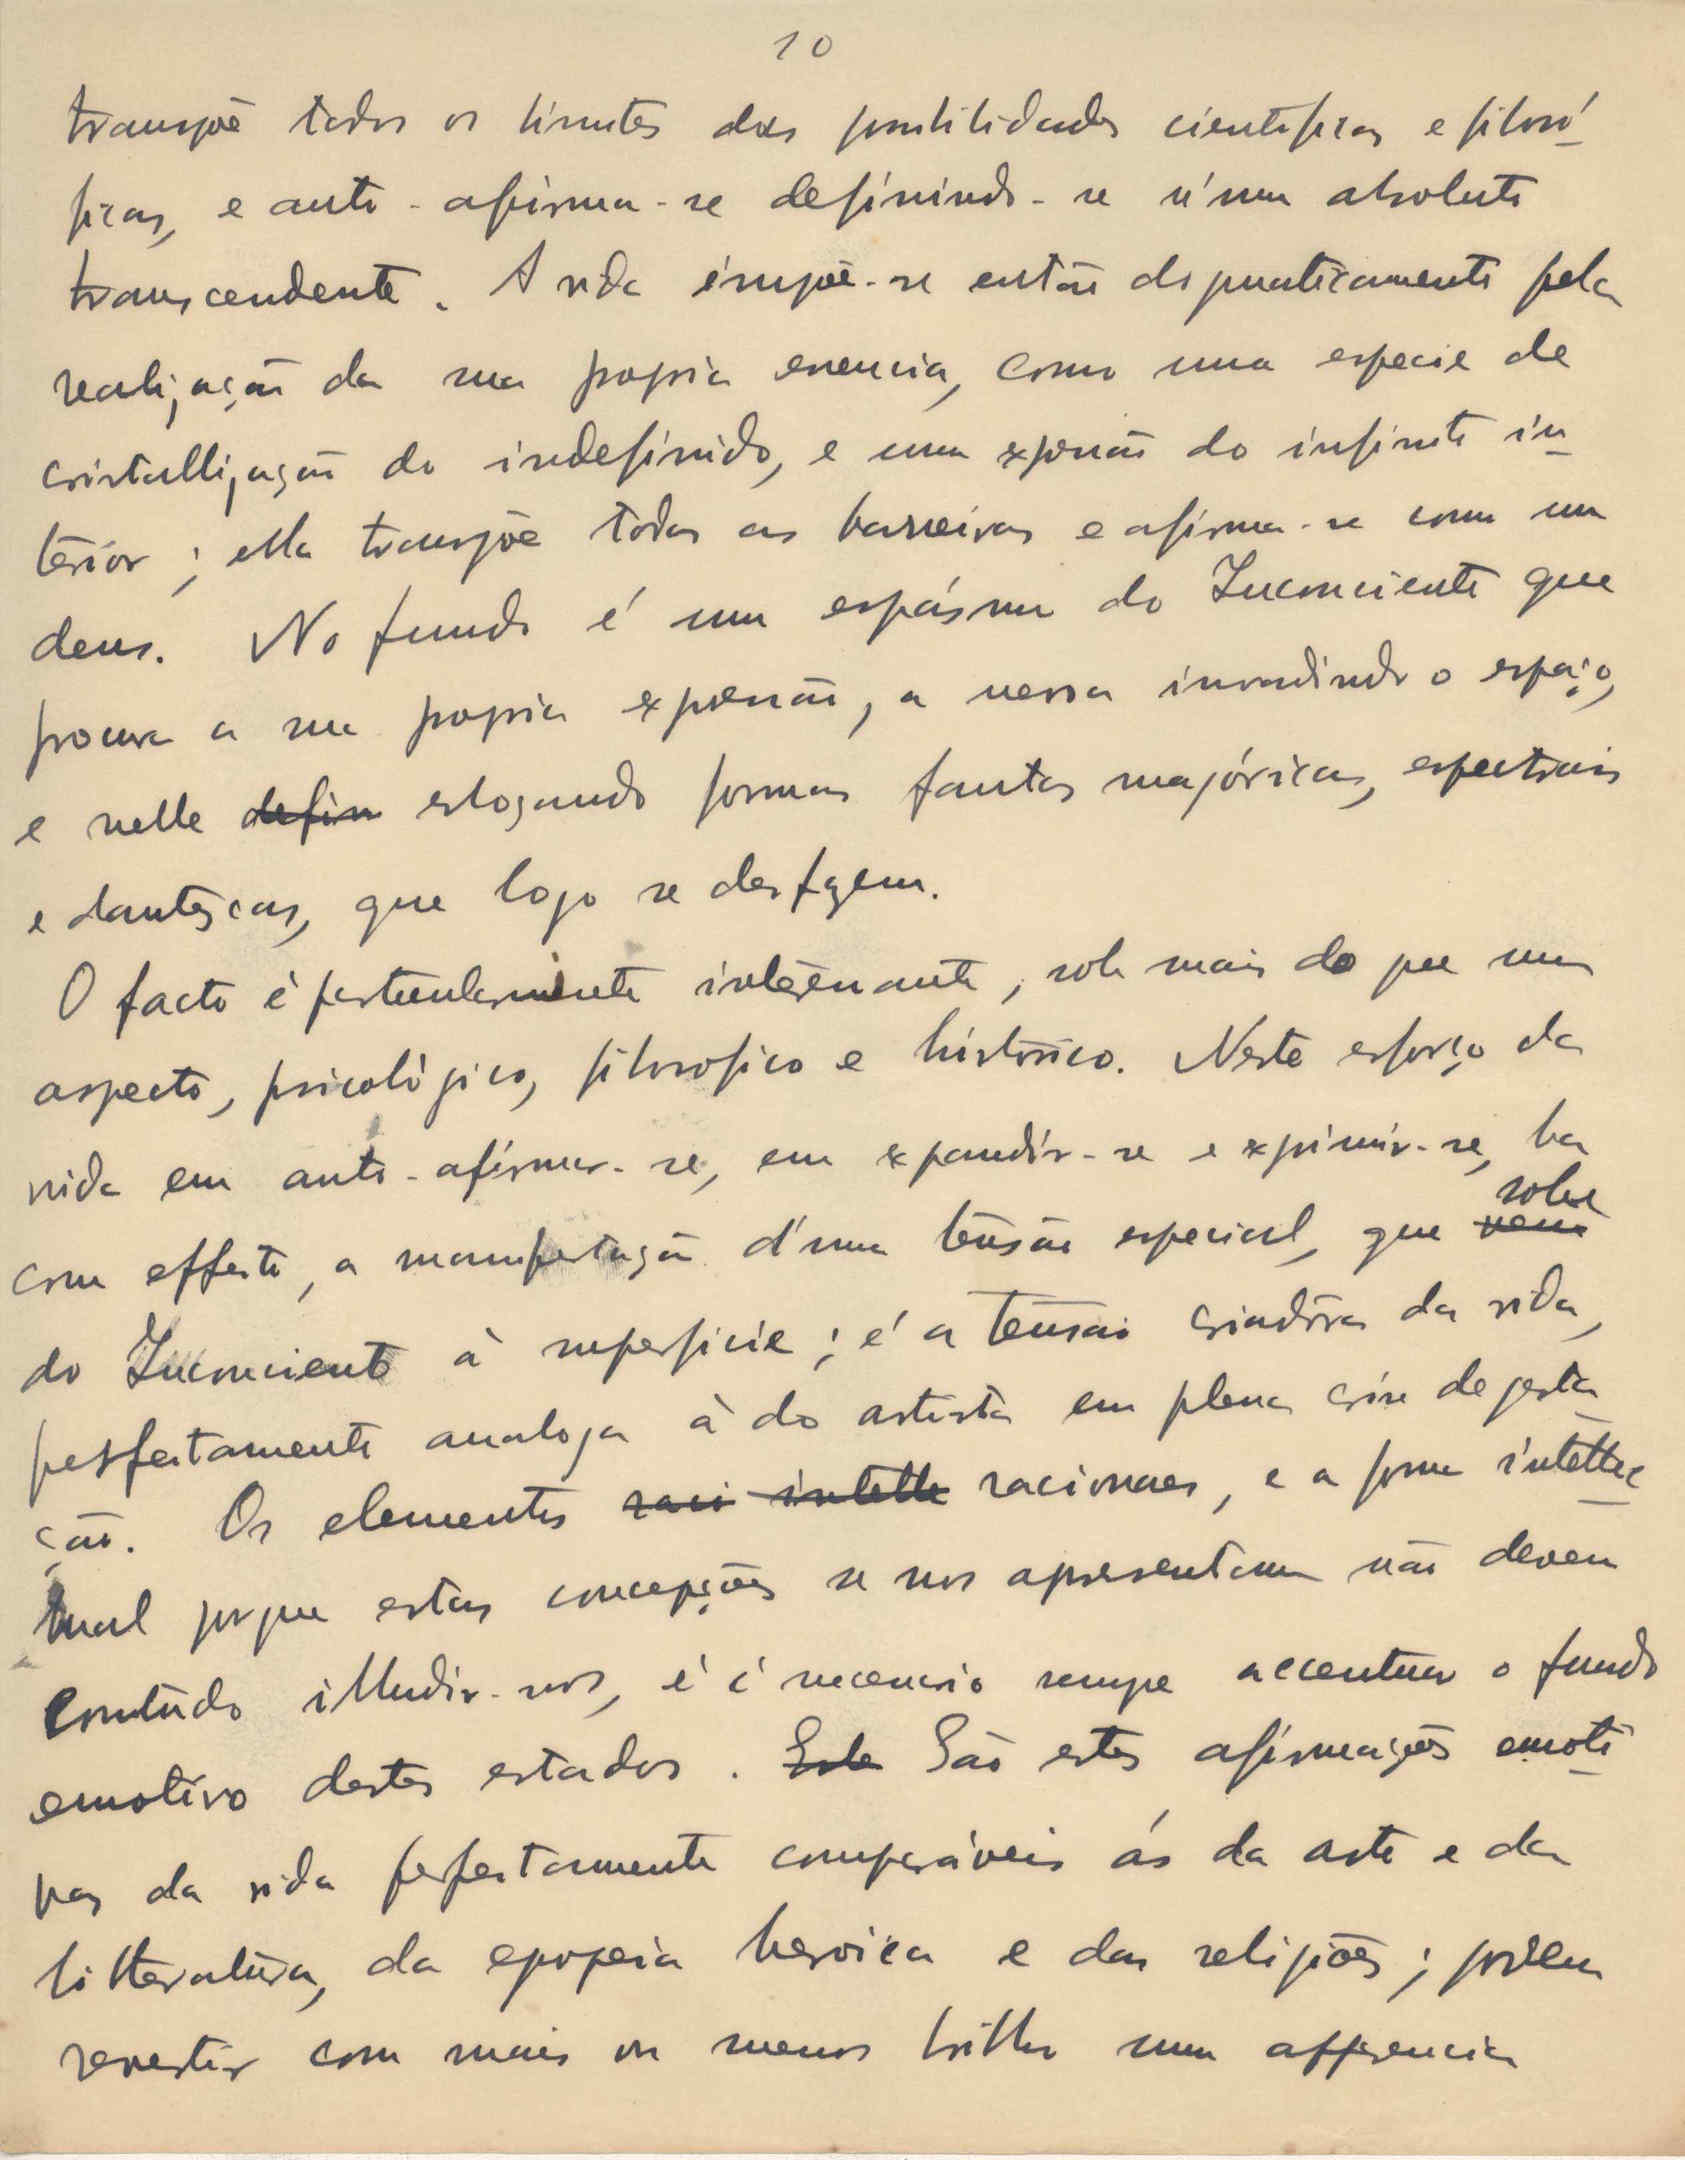 10
transpõe todos os limites das possibilidades cientificas e filosó-
ficas, e auto-afirma-se definindo-se n'um absoluto
transcendente. A vida impõe-se então dogmaticamente pela
realização da sua propria essencia, como uma especie de
cristallização do indefinido, e uma expressão do infinito in-
terior; ella transpõe todas as barreiras e afirma-se como um
deus. No fundo é um espásmo do Inconciente que
procura a sua propria expressão, a nevroa invadindo o espaço,
e nelle defin esboçando formas fantasmagóricas, espectrais
e dantescas, que logo se desfazem.
O facto é particularmente interessante, sob mais do que um
aspecto, psicológico, filosofico e histórico. Neste esforço da
vida em auto-afirmar-se, em expandir-se e exprimir-se, ha
com effeito, a manifestação d'uma tensão especial, que vem sobe
do Inconciente à superficie; é a tensão criadôra da vida,
perfeitamente analoga à do artista em plena crise de gesta
ção. Os elementos raci intelle racionaes, e a forma intellec-
tual porque estas concepções se nos apresentam não devem
comtudo illudir-nos, é é necessario sempre accentuar o fundo
emotivo destes estados. Este São estas afirmações emoti-
vas da vida perfeitamente comparáveis ás da arte e da
litteratura, da epopeia heroica e das religiões; podem
revestir com mais ou menos brilho uma apparencia